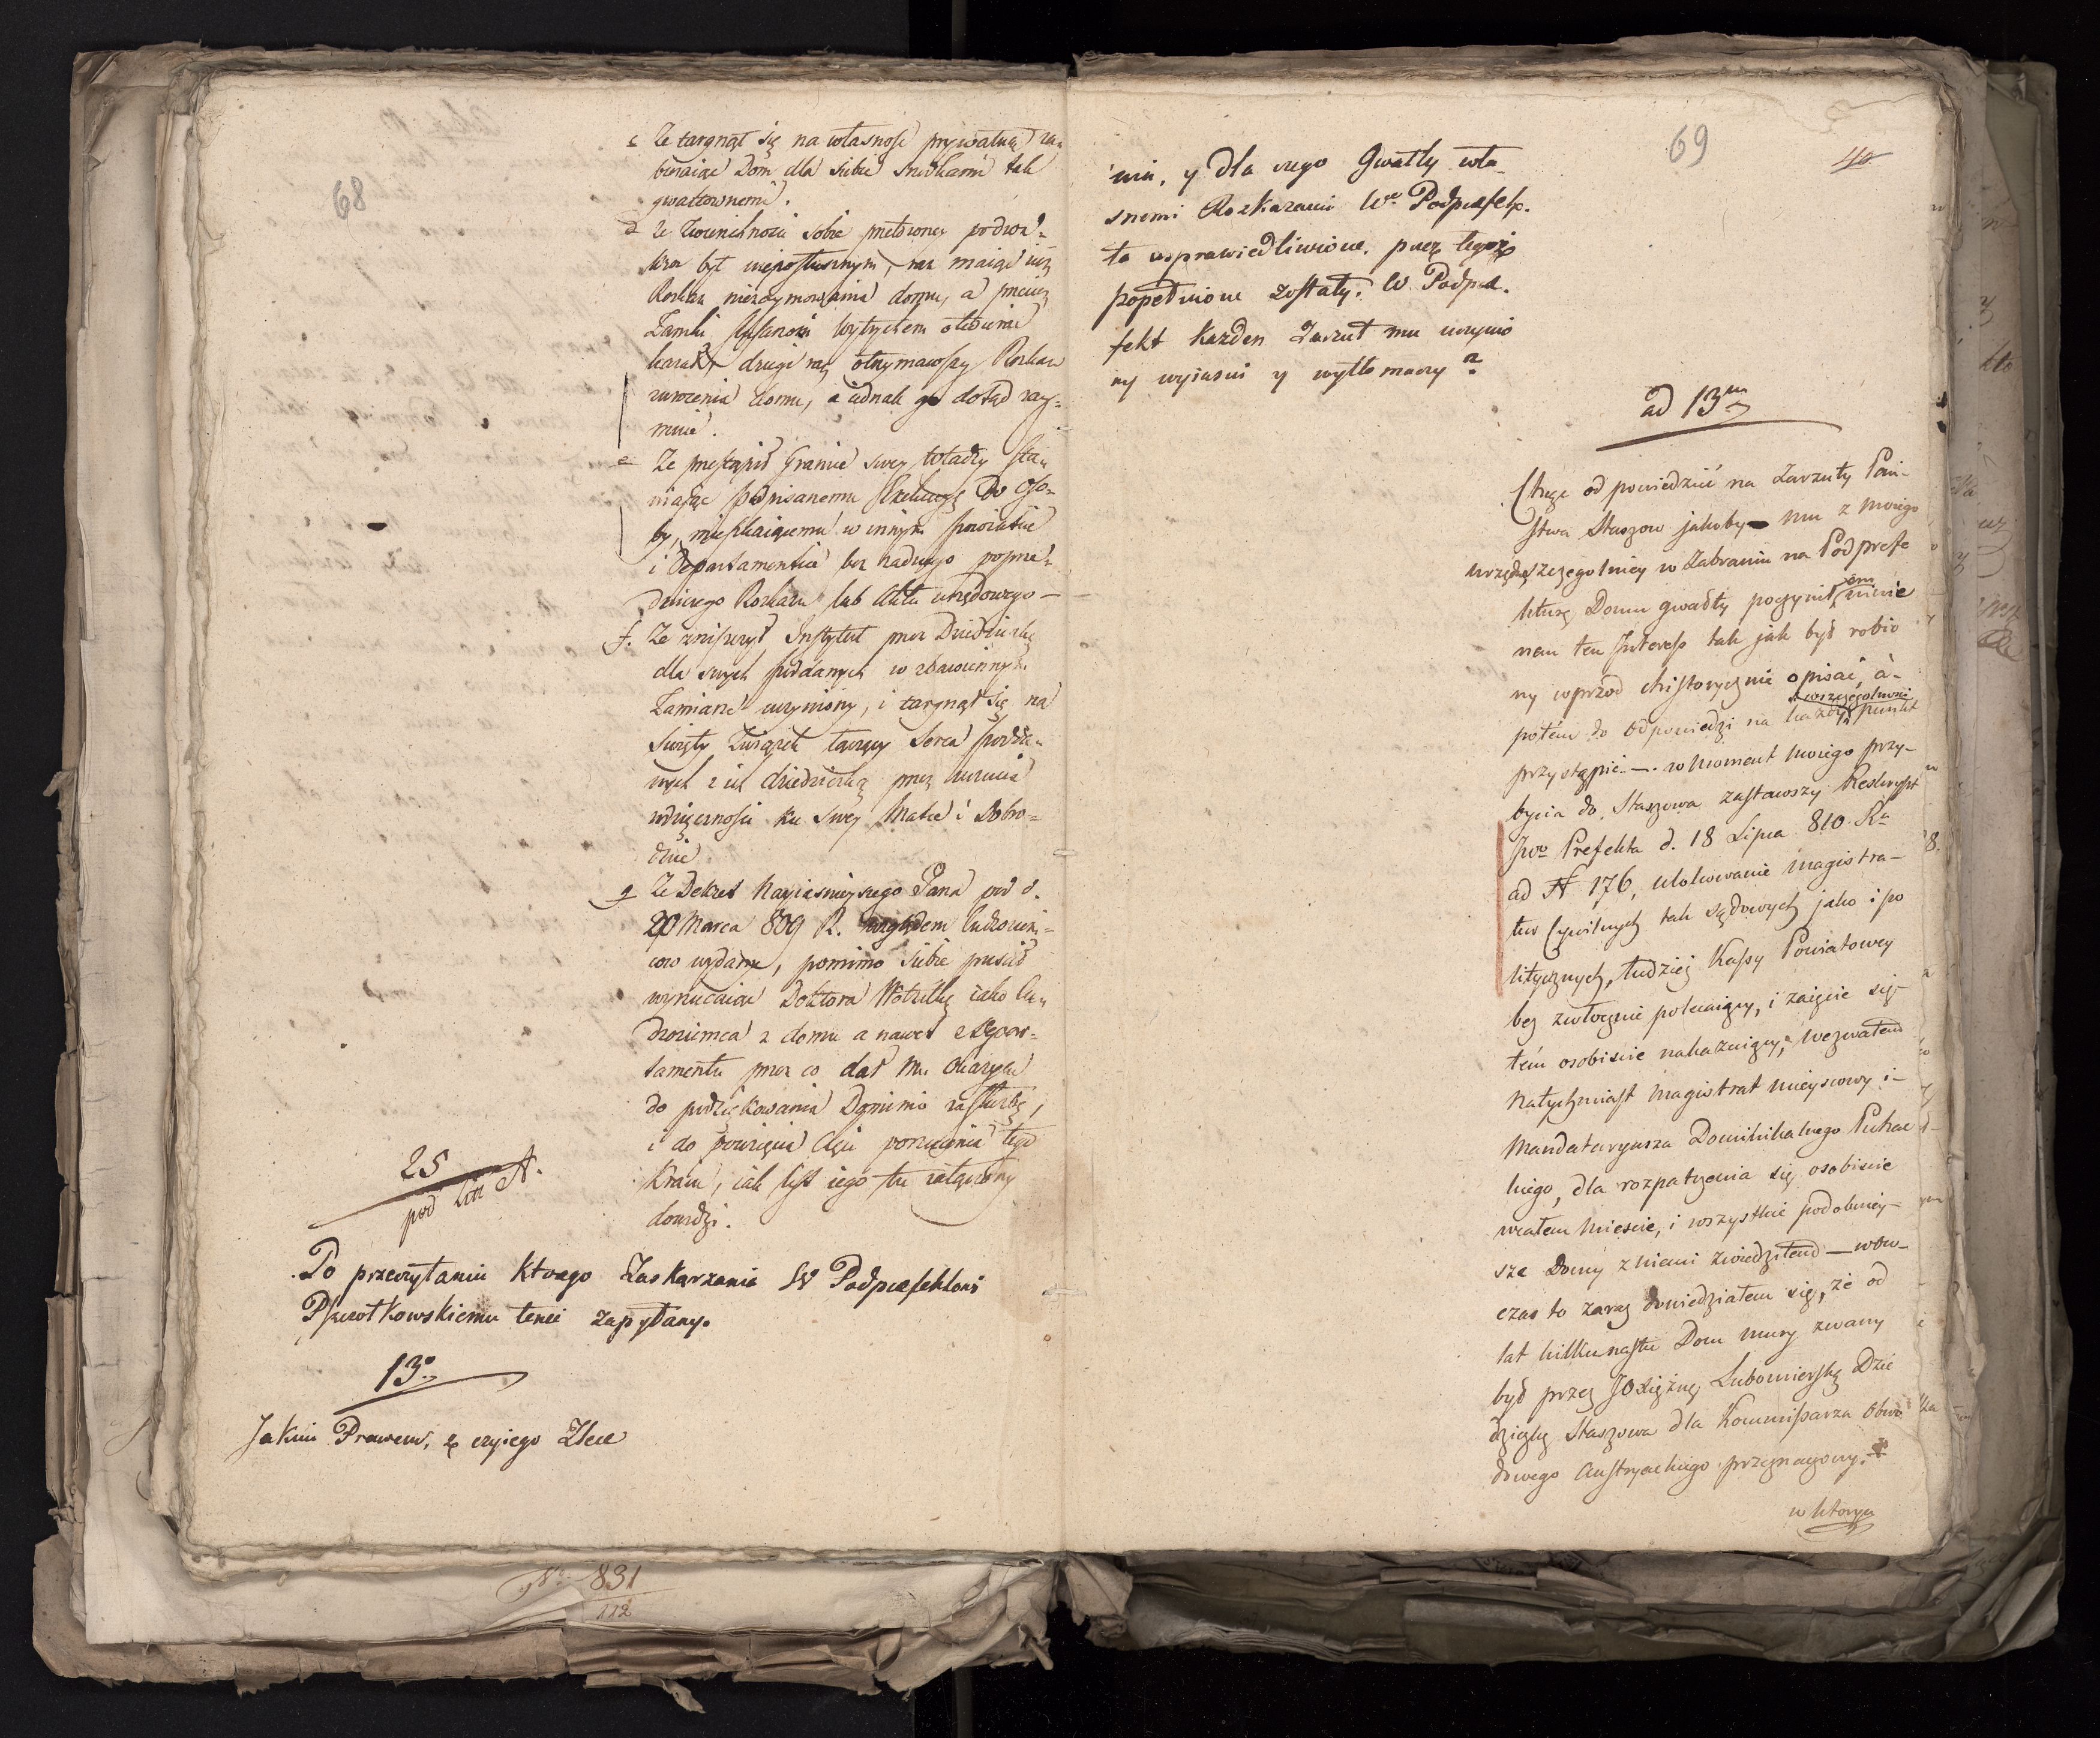 68
c Że targnął się na własność prywatną za„
bieraiąc Dom dla siebie srzodkami tak
gwałtownemi.
d Że Zwierzchności sobie przełożoney podwod„
był nieposłusznym, raz maiąc iuż
Rozkaz nieczymowania domu, a przecież
Zamki Wytrychem otwierać
kazał, drugi raz otrzymawszy Rozkaz
zwrocenia domu, a iednak go dotąd zay„
muie.
e Że przestąpił Granice swey władzy sta„
wiaiąc podpisanemu Exekucyą do oso„
by, mieszkaiącemu w innym powiecie
i Departamencie bez żadnego poprze„
dniczego Rozkazu lub Aktu urzędowego —
f. Że zniszczył Instytut przez Dziedziczkę
dla swych poddanych w zbawiennym
Zamiarze uczyniony, i targnął się na
święty Związek łączący Serca podda„
nych z ich dziedziczką przez rzucenie
wdzięczności ku swey Matce i Dobro„
dzice
g Że Dekret Nayiaśnieyszego Pana pod d.
20 Marca 809 R. względem Cudzoziem„
cow wydany, pomimo siebie puścił
wyrzucaiąc Doktora Wotrubę iako Cu„
dzoziemca z domu a nawet z Depar„
tamentu przez co dał mu Okazyą
do podziękowania Dominio za służbę,
i do powzięcia chęci porzucenia tego
Kraiu, iak list iego tu załączony
dowodzi.
25
pod Litt A.
Po przeczytaniu Ktorego Zaskarzenia W Podprefektowi
Pszczołkowskiemu tenże zapytany.
13º
Jakim Prawem, z czyiego Zlece
69
40
nia, y dla czego Gwałty wła„
snemi Rozkazami Wº Podprefek.
ta usprawiedliwione, przez tegoż
popełnione zostały? W Podpre„
fekt każden Zarzut mu uczynio
ny wyiaśni y wytłomaczy?
ad 13m
Chcąc odpowiedzić na Zarzuty Pań„
stwa Staszow jakoby mu z moiego
urzędu, szczegolniey w Zabraniu na Podprefe
kturę Domu gwałty poczynił em, winie
nem ten Interess tak jak był robio
ny wprzod chistorycznie opisać, a„
potem do odpowiedzi na każdy w szczegolności punkt
przystąpić —. w moment moiego przy„
bycia do Staszowa zastawszy Reskrypt
JWº Prefekta d. 18 Lipca 810 Rº
ad N 176, ulokowanie magistra„
tur Cywilnych tak sądowych jako i po
litycznych, tudzież Kassy Powiatowey
bez zwłocznie polecaiący, i zaięcie się„
tem osobiście nakazuiący, wezwałem
natychmiast magistrat mieyscowy i„
Mandataryusza Dominikalnego Puchal
skiego, dla rozpatrzenia się osobiście
w całem mieście, i wszystkie podobniey„
sze Domy z niemi zwiedziłem — wow„
czas to zaraz dowiedziałem się, że od
lat kilkunastu Dom mury zwany
był przez JO Xiężnę Lubomirską Dzie
dziczkę Staszowa dla Kommissarza Obwo
dowego Austryackiego przeznaczony.
w ktorym
Nº 831
112